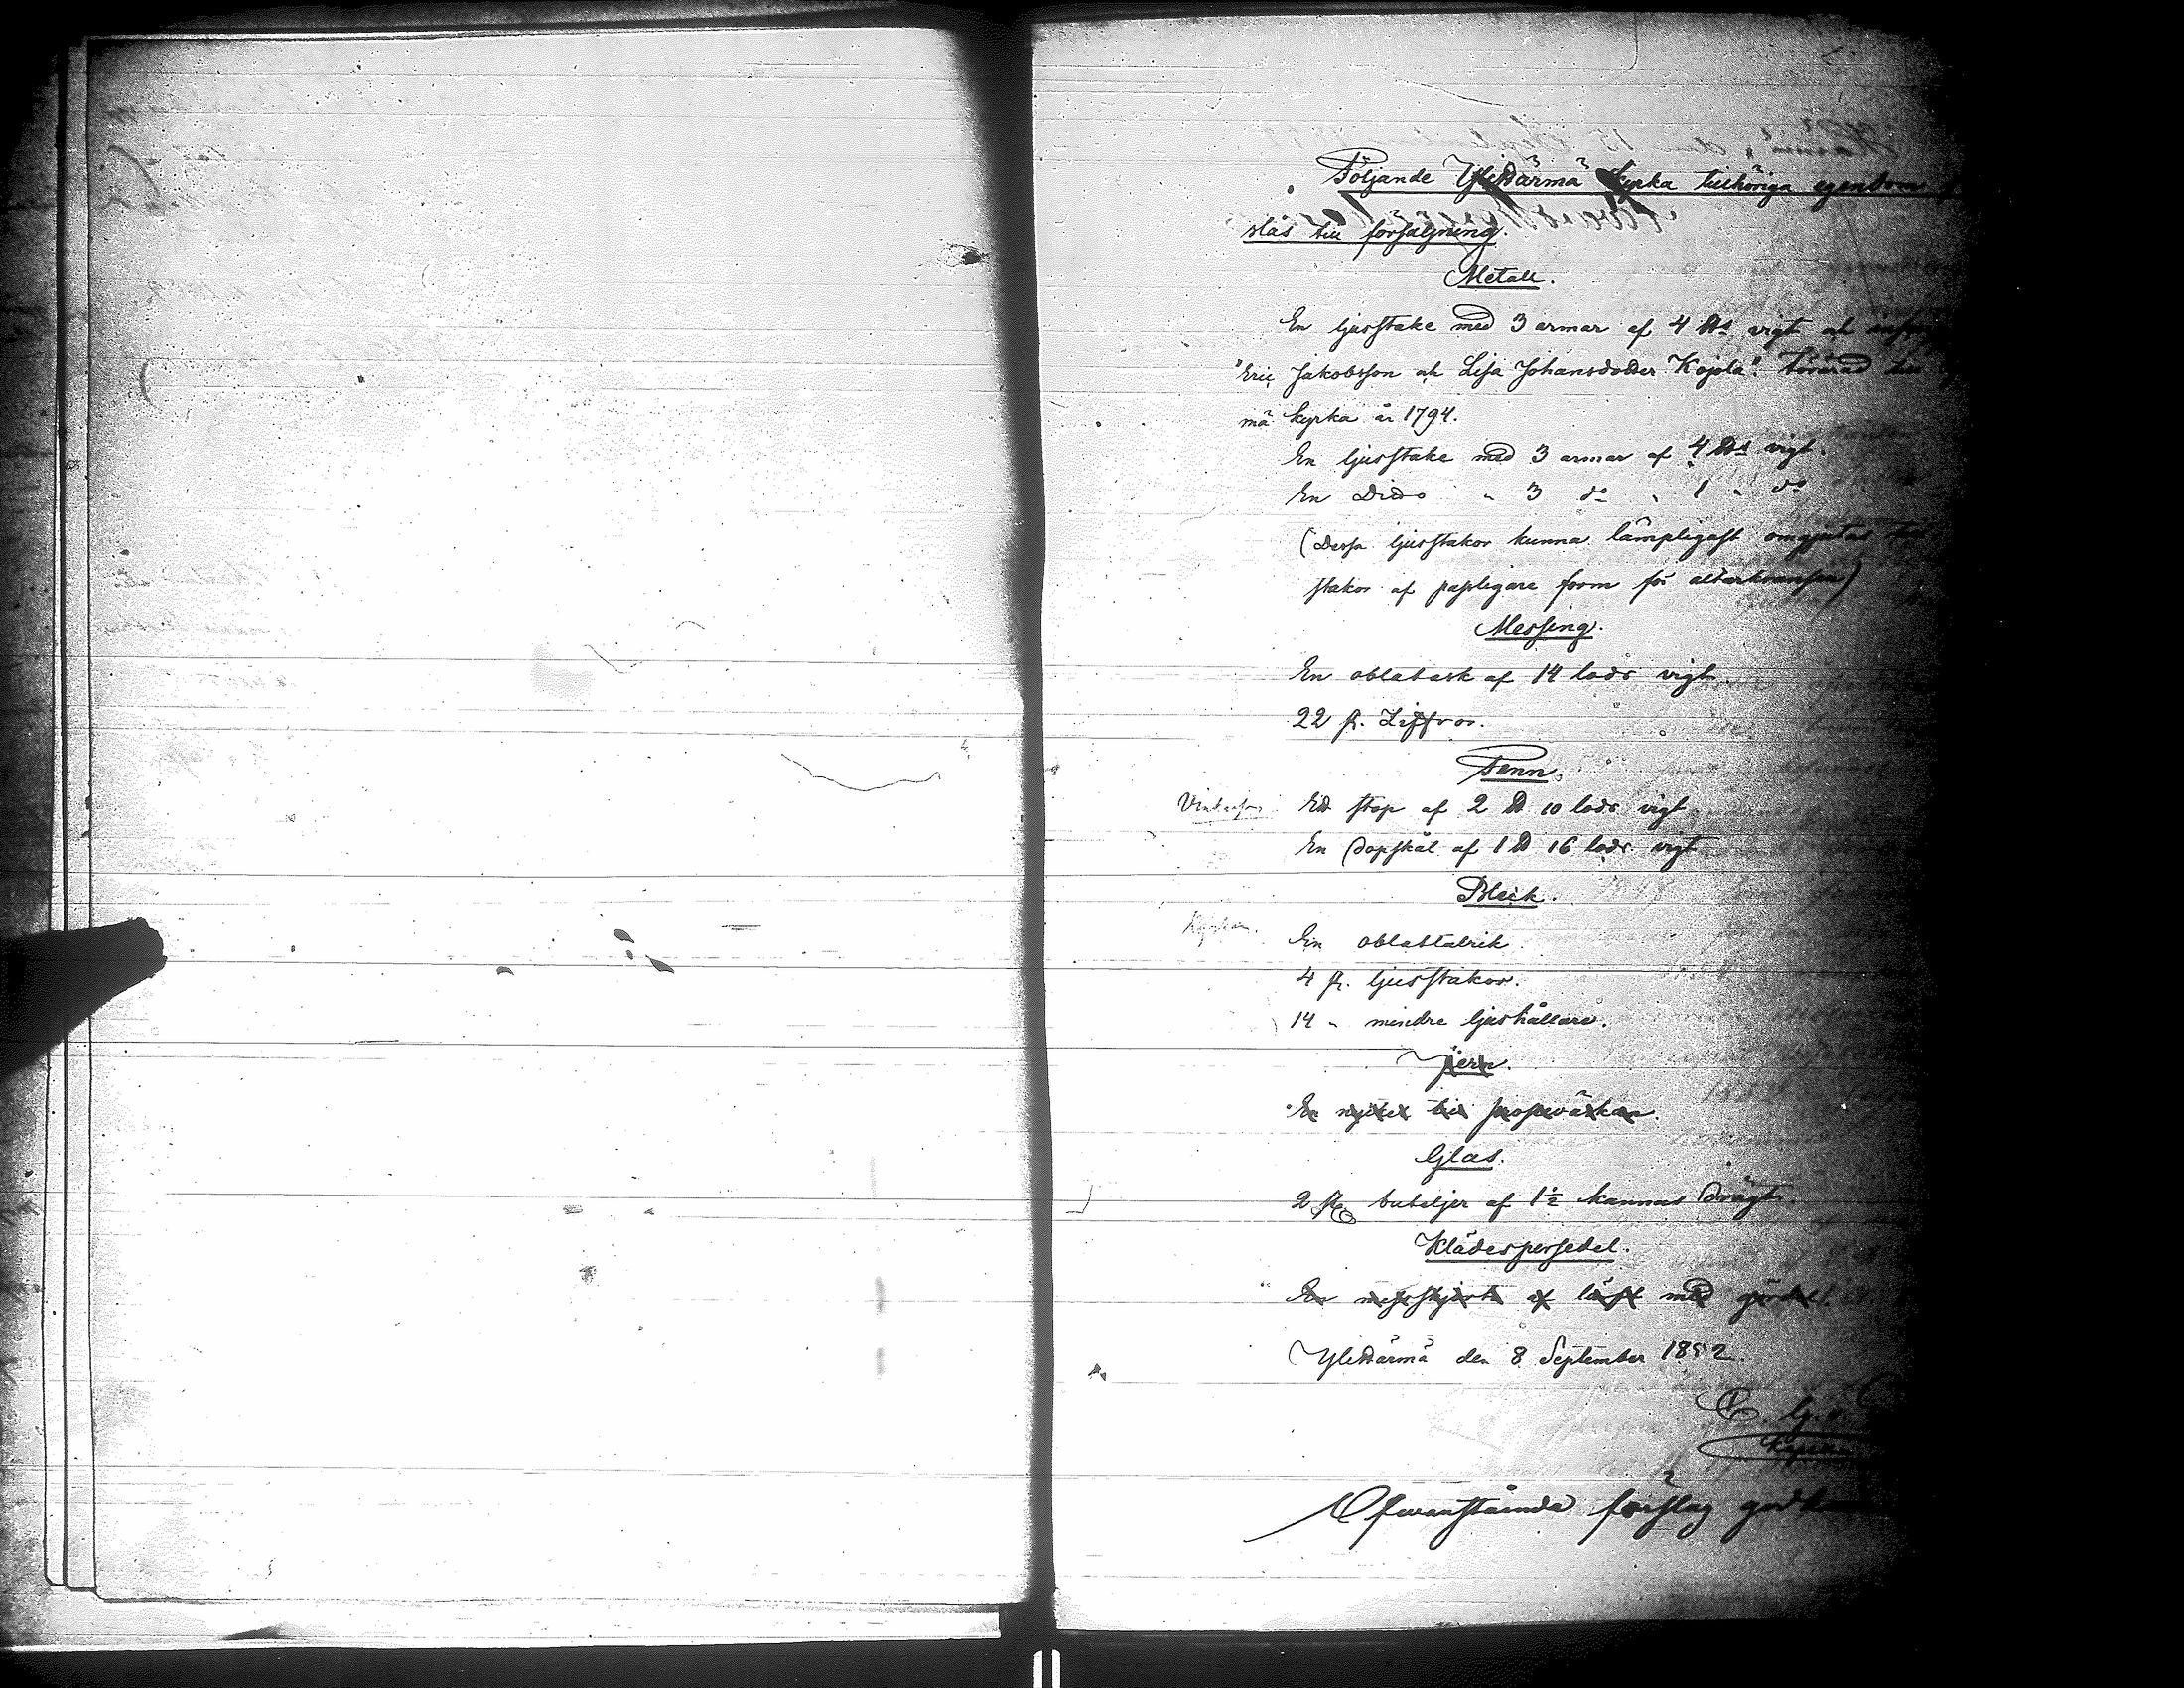 Följande Ylihärmä kyrka tillhöriga egendom
slås till försäljning.
Metall.
En ljusstake med 3 armar af 4 ℔s vigt och
"Eric Jakobsson och Lisa Johansdotter Kojola". Förärad till
mä kyrka år 1794.
En ljusstake med 3 armar af 4 ℔s vigt.
En Dito " 3 do " 1 " do
(Dessa ljusstakor kunna lämpligast omgjutas till
stakor af passligare form för altarkransen)
Messing.
En oblatask af 14 lods vigt
22 st. Liffror.
Tenn.
Ett stop af 2 ℔ 10 lods vigt
En dopskål af 1 ℔ 16 lods vigt
Bleck.
En oblattalrik.
4 st. ljusstakor.
14 " mindre ljushållare.
Jern.
En nyckel till
Glas.
2 st buteljer af 1½ kannas drägt.
Klädespersedel.
En messskjorta af lärft med gördel.
Ylihärmä den 8 September 1892.
Ofvanstående förslag